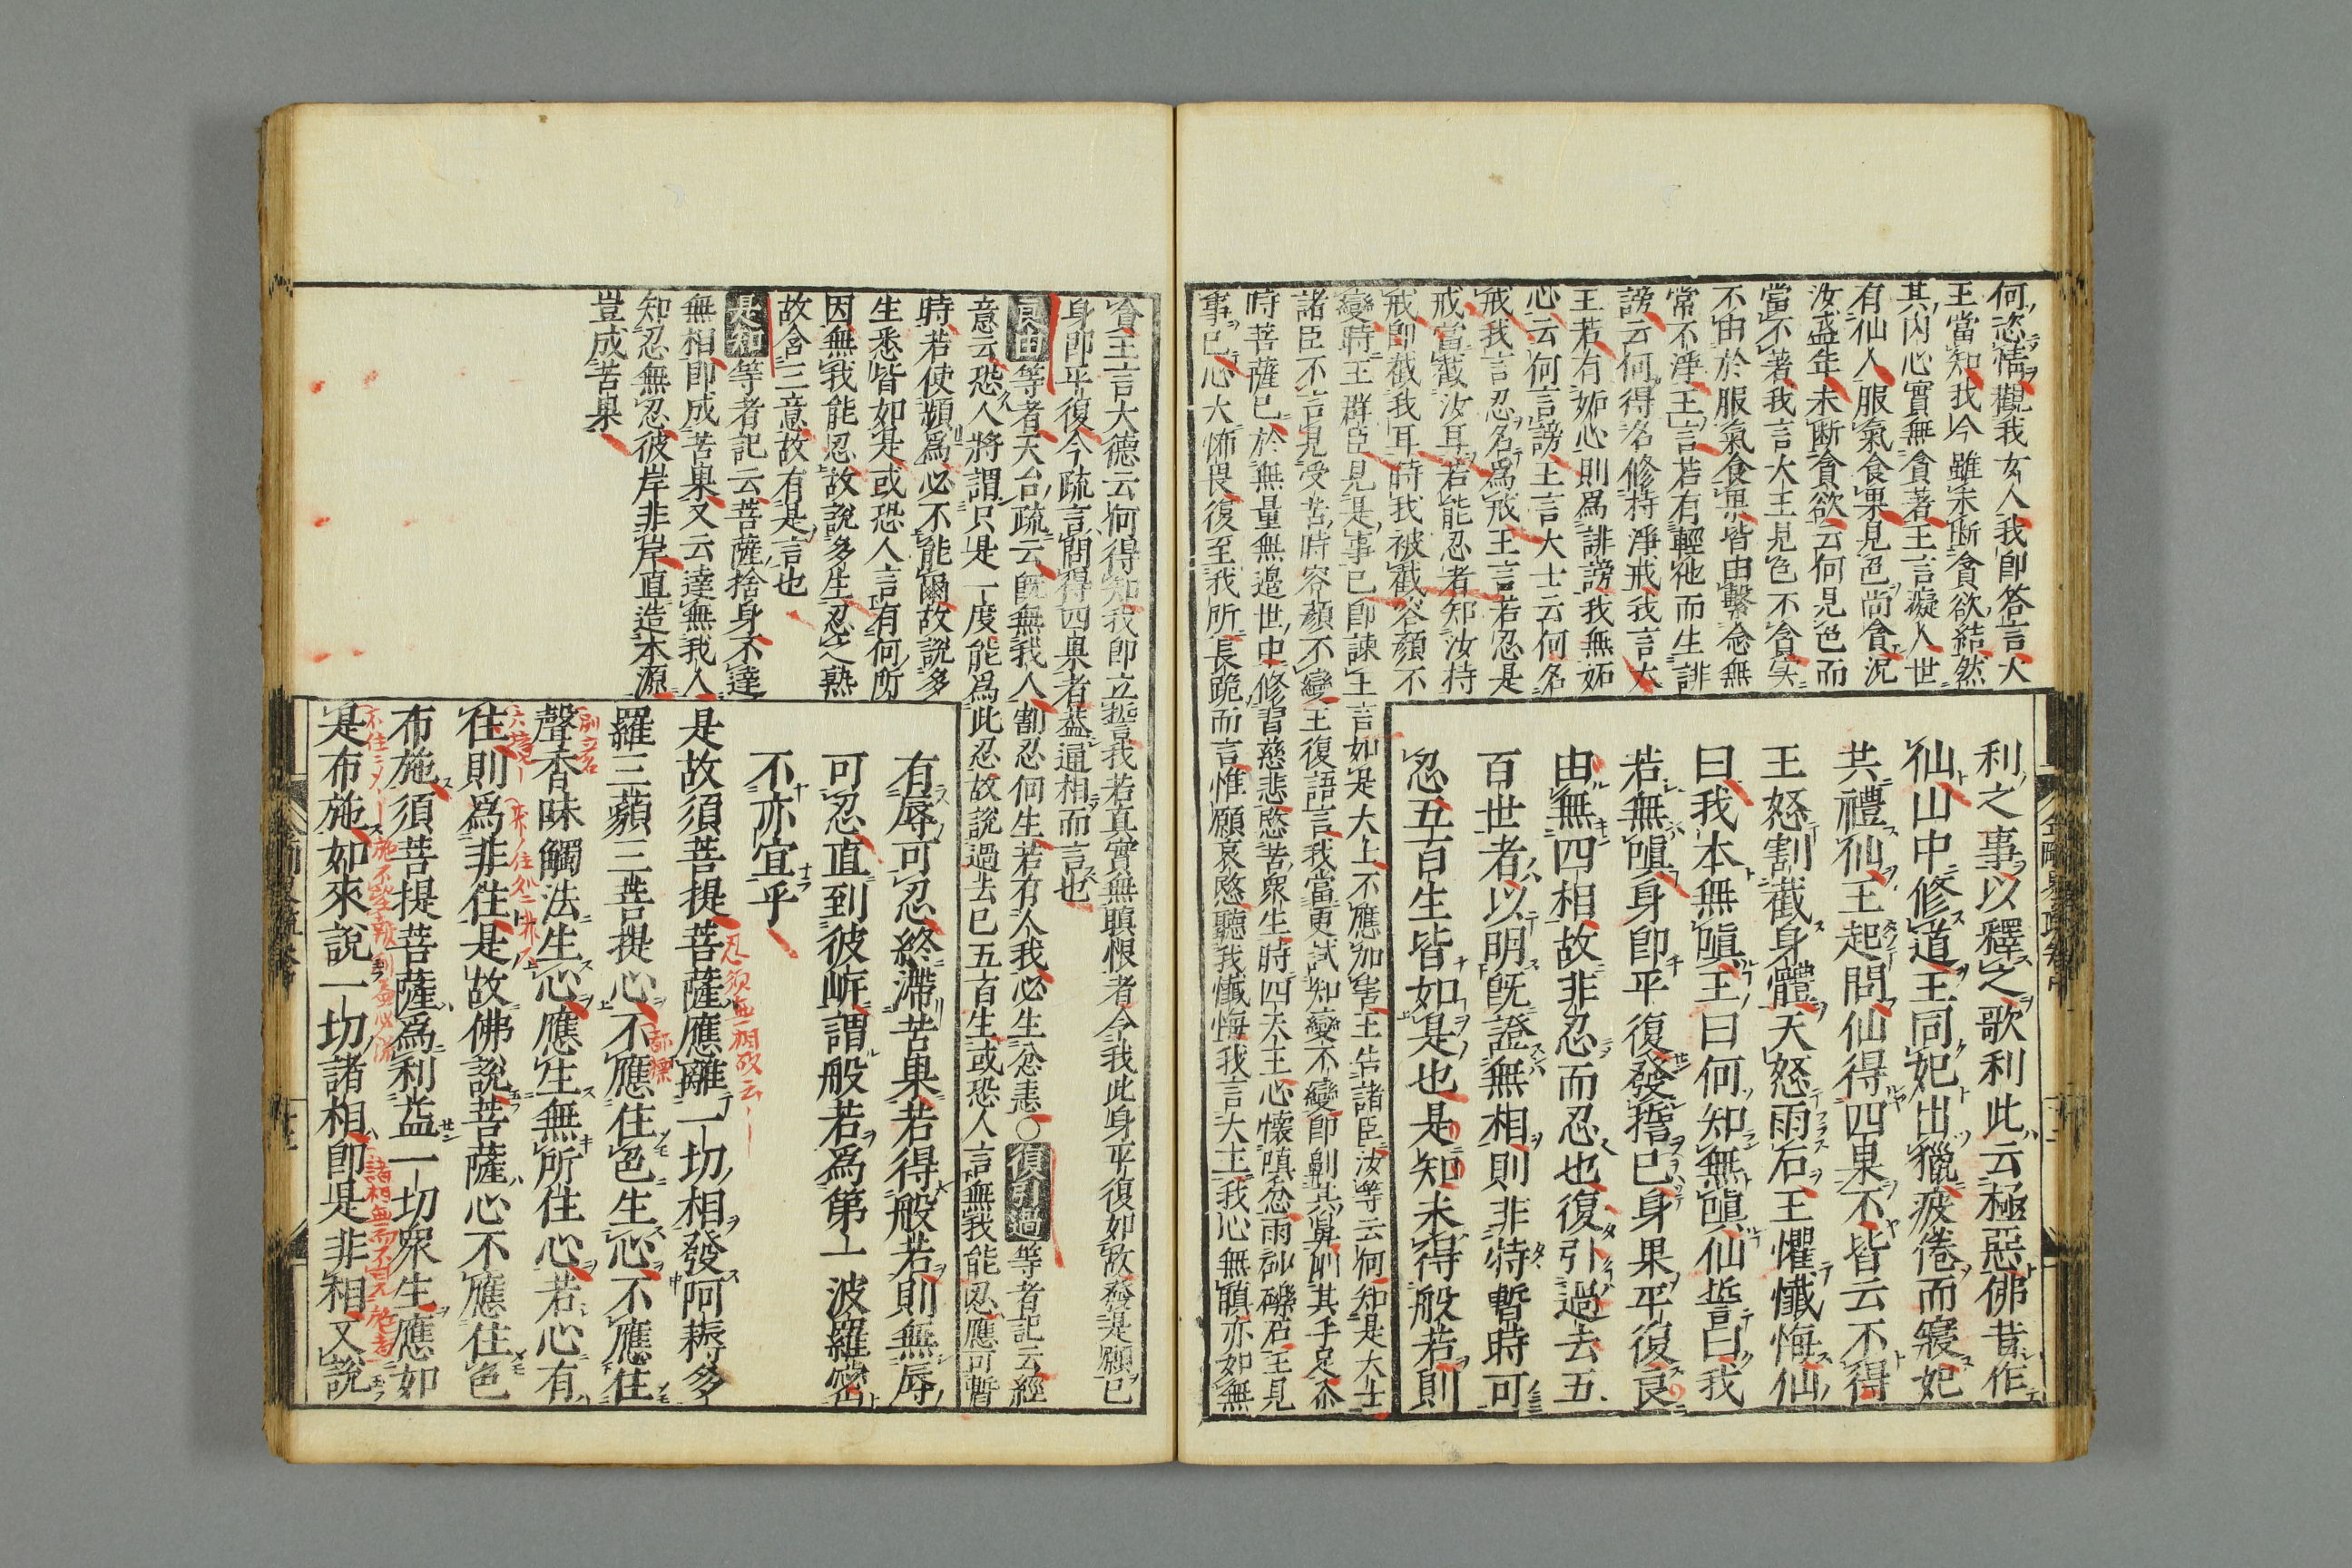 何恣情觀我女人我即答言大
王當知我今雖未斷貪欲結然
其内心實無貪著王言癡人世
有仙人服氣食果見色尚貪況
汝盛年未斷貪欲云何見色而
當不著我言大王見色不貪实
不由於服氣食果皆由繫念無
常不淨王言若有輕他而生誹
謗云何得名修持淨戒我言大
王若有妬心則爲誹謗我無妬
心云何言謗王言大士云何名
戒我言忍名爲戒王言若忍是
戒當截汝耳若能忍者知汝持
戒即截我耳時我被截容顏不
變時王群臣見是事已即諫王言如是大士不應加害王告諸臣汝等云何知是大士
諸臣不言見受苦時容顏不變王復語言我當更試知變不變即劓其鼻刖其手足尒
時菩薩已於無量無邊世中修習慈悲愍苦衆生時四天王心懷嗔忿雨砂礫石王見
事已心大怖畏復至我所長跪而言惟願哀愍聽我懺悔我言大王我心無瞋亦如無
利之事以釋之歌利此云極惡佛昔作
仙山中修道王同妃出獵疲倦而寢妃
共禮仙王起問仙得四果不皆云不得
王怒割截身體天怒雨石王懼懺悔仙
曰我本無嗔王曰何知無嗔仙誓曰我
若無嗔身即平復發誓已身果平復良
由無四相故非忍而忍也復引過去五
百世者以明既證無相則非特暫時可
忍五百生皆如是也是知未得般若則
貪王言大德云何得知我即立誓我若真實無瞋恨者令我此身平復如故發是願已
身即平復今疏言問得四果者葢通相而言也
良由等者天台疏云既無我人割忍何生若有人我必生忿恚○復引過等者記云經
意云恐人將謂只是一度能爲此忍故說過去已五百生或恐人言無我能忍應可暫
時若使頻爲必不能爾故說多
生悉皆如是或恐人言有何所
因無我能忍故說多生忍之熟
故含三意故有是言也
是知等者記云菩薩捨身不達
無相即成苦果又云達無我人
知忍無忍彼岸非岸直造本源
豈成苦果
有辱可忍終滯苦果若得般若則無辱
可忍直到彼岸謂般若爲第一波羅蜜
不亦宜乎
是故須菩提菩薩應離一切相發阿耨多
羅三藐三菩提心不應住色生心不應住
聲香味觸法生心應生無所住心若心有
住則爲非住是故佛說菩薩心不應住色
布施須菩提菩薩爲利益一切衆生應如
是布施如來說一切諸相即是非相又說